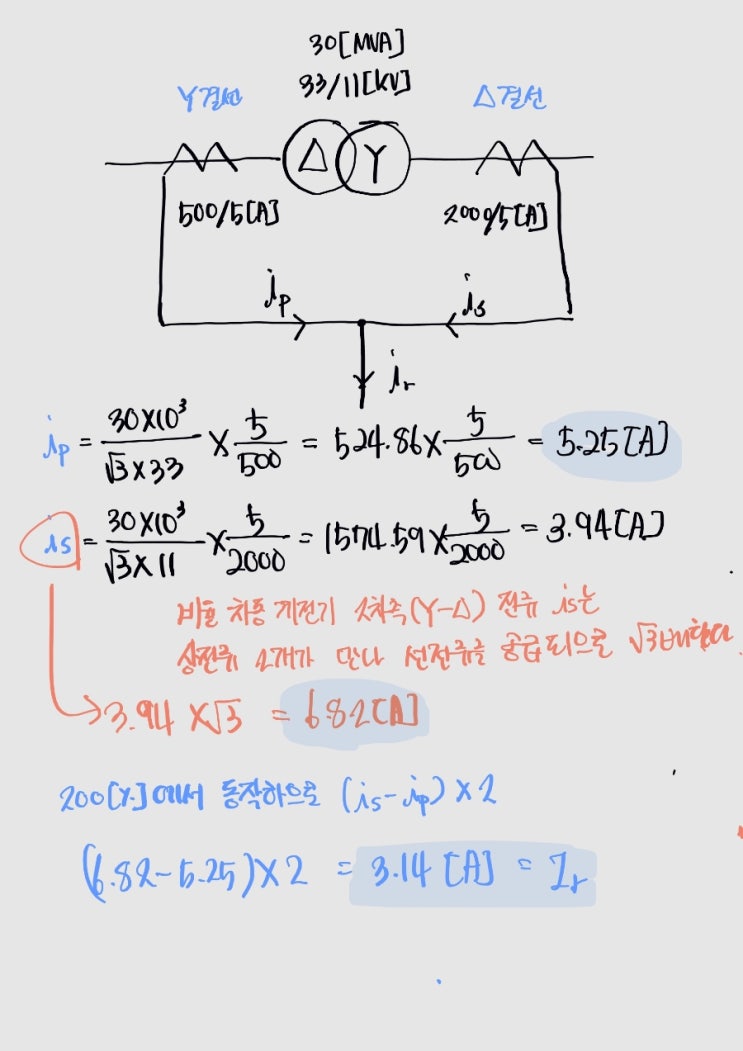 30[MVA]
33/11[kV]
Y결선
△결선
△ Y
500/5[A]
2000/5[A]
ip
is
ir
ip = 30×10³/√3×33 × 5/500 = 524.86 × 5/500 = 5.25[A]
is = 30×10³/√3×11 × 5/2000 = 1574.59 × 5/2000 = 3.94[A]
비율 차동 계전기 2차측(Y-△) 전류 is는
상전류 2개가 만나 선전류를 공급되므로 √3배한다.
3.94 × √3 = 6.82[A]
200[%]에서 동작하므로 (is-ip)×2
(6.82-5.25)×2 = 3.14[A] = Ir